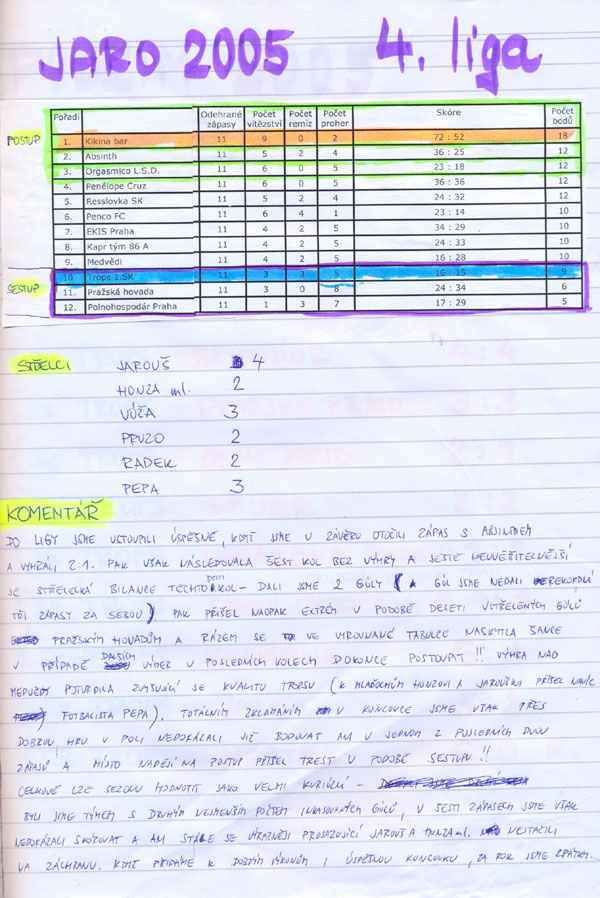 JARO 2005 4. liga
Pořadí Odehrané zápasy Počet vítězství Počet remíz Počet proher Skóre Počet bodů
POSTUP
1. Kikina bar 11 9 0 2 72 : 52 18
2. Absinth 11 5 2 4 36 : 25 12
3. Orgasmico L.S.D. 11 6 0 5 23 : 18 12
4. Penélope Cruz 11 6 0 5 36 : 36 12
5. Resslovka SK 11 5 2 4 24 : 32 12
6. Penco FC 11 6 4 1 23 : 14 10
7. EKIS Praha 11 4 2 5 34 : 29 10
8. Kapr tým 86 A 11 4 2 5 24 : 33 10
9. Medvědi 11 4 2 5 16 : 28 10
SESTUP
10. Trops 1.SK 11 3 3 5 16 : 15 9
11. Pražská hovada 11 3 0 8 24 : 34 6
12. Polnohospodár Praha 11 1 3 7 17 : 29 5
STŘELCI JAROUŠ 4
HONZA ml. 2
VÚŽA 3
PRUZO 2
RADEK 2
PEPA 3
KOMENTÁŘ
DO LIGY JSME VSTOUPILI ÚSPĚŠNĚ, KDYŽ JSME V ZÁVĚRU OTOČILI ZÁPAS S ABSINTHEM
A VYHRÁLI 2:1. PAK VŠAK NÁSLEDOVALA ŠEST KOL BEZ VÝHRY A JEŠTĚ NEUVĚŘITELNĚJŠÍ
JE STŘELECKÁ BILANCE TĚCHTO ŠESTI KOL – DALI JSME 2 GÓLY (A GÓL JSME NEDALI REKORDNÍ
TŘI ZÁPASY ZA SEBOU) PAK PŘIŠEL NAOPAK EXTRÉM V PODOBĚ DESETI VSTŘELENÝCH GÓLŮ
PRAŽSKÝM HOVADŮM A RÁZEM SE VE VYROVNANÉ TABULCE NASKYTLA ŠANCE
V PŘÍPADĚ DALŠÍCH VÝHER V POSLEDNÍCH KOLECH DOKONCE POSTOUPIT!! VÝHRA NAD
POTVRDILA ZVYŠUJÍCÍ SE KVALITU TROPSU (K MLADOCHŮM HONZOVI A JAROUŠOVI PŘIŠEL NAVÍC
FOTBALISTA PEPA). TOTÁLNÍM ZKLAMÁNÍM V KONCOVCE JSME VŠAK PŘES
DOBROU HRU V POLI NEDOKÁZALI JIŽ BODOVAT ANI V JEDNOM Z POSLEDNÍCH DVOU
ZÁPASŮ A MÍSTO NADĚJÍ NA POSTUP PŘIŠEL TREST V PODOBĚ SESTUPU!!
CELKOVĚ LZE SEZONU HODNOTIT JAKO VELMI KURIÓZNÍ –
BYLI JSME TÝMEM S DRUHÝM NEJMENŠÍM POČTEM INKASOVANÝCH GÓLŮ, V ŠESTI ZÁPASECH JSME VŠAK
NEDOKÁZALI SKÓROVAT A ANI STÁLE SE VÝRAZNĚJI PROSAZUJÍCÍ JAROUŠ A HONZA ml. NESTAČILI
NA ZÁCHRANU. KDYŽ PŘIDÁME K DOBRÝM VÝKONŮM I ÚSPĚŠNOU KONCOVKU, ZA ROK JSME ZPÁTKY...